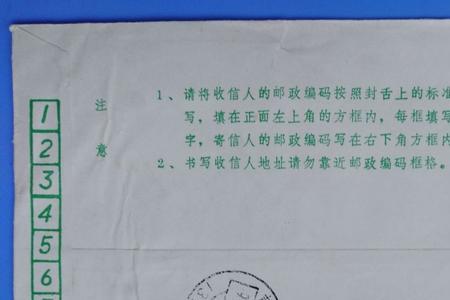 注意
1、请将收信人的邮政编码按照封舌上的标准
写，填在正面左上角的方框内，每框填写
字，寄信人的邮政编码写在右下角方框内
2、书写收信人地址请勿靠近邮政编码框格。
1
2
3
4
5
6